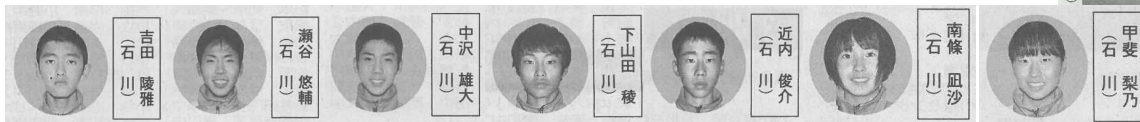 吉田　陵雅
（石　川）
瀬谷　悠輔
（石　川）
中沢　雄大
（石　川）
下山田　稜
（石　川）
近内　俊介
（石　川）
南條　凪沙
（石　川）
甲斐　梨乃
（石　川）